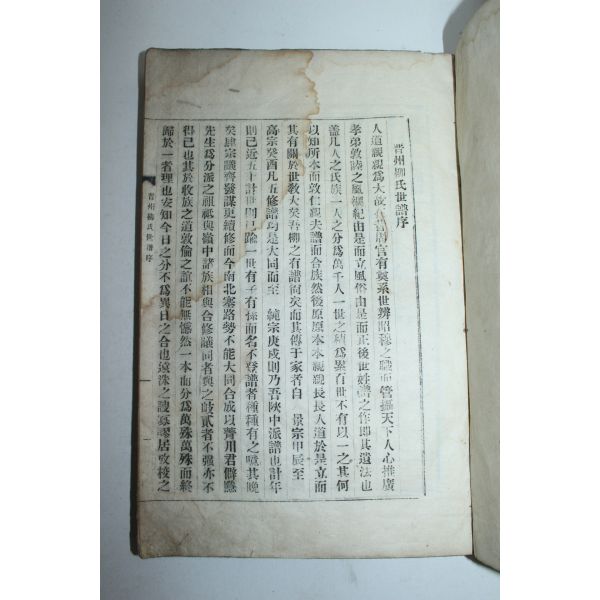 晋州柳氏世譜序
人道親親爲大故在昔周官有奠系世辨昭穆之職而管攝天下人心推廣
孝弟敦睦之風綱紀由是而立風俗由是而正後世姓譜之作即其遺法也
盖凡人之氏族一人之分爲萬千人一世之積爲累百世不有以一之其何
以知所本而敦仁親夫譜而合族然後原原本本親親長長人道於是立而
其有關於世敎大矣吾柳之有譜尙矣而其傳于家者自 景宗甲辰至
高宗癸酉凡五修譜均是大同而至 純宗庚戌則乃吾陜中派譜也計年
則已近五十計世則已踰一世有子有孫而名不登譜者種種有之嘆其晚
矣肆宗議齊發謀更續修而今南北塞路勢不能大同合成以菁川君僻隱
先生爲分派之祖祗與嶺中諸族相與合修議同者與之歧貳者不强亦不
得已也其於收族之道敦倫之誼不能無憾然一本而分爲萬殊萬殊而終
歸於一者理也安知今日之分不爲異日之合也遠洙之謏寡謬居攷校之
晋州柳氏世譜序